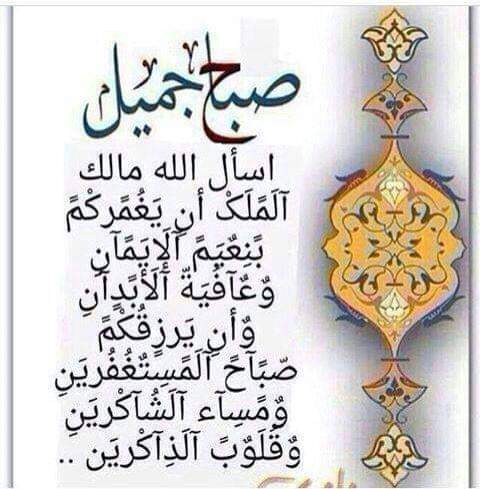 صباح جميل
اسأل الله مالك
آلَمًلَکْ أن يَغُمًركْمً
بًنِعٌيَمً آلَإيَمًآنِ
وٌعٌآفُيَةّ آلَأبًدٍآنِ
وٌأنِ يَرزٍقُکْمً
صّبًآحً آلَمًسِتٌغُفُريَنِ
وٌمًسِآء آلَشُآکْريَنِ
وٌقُلَوٌبً آلَذِآکْريَن ..